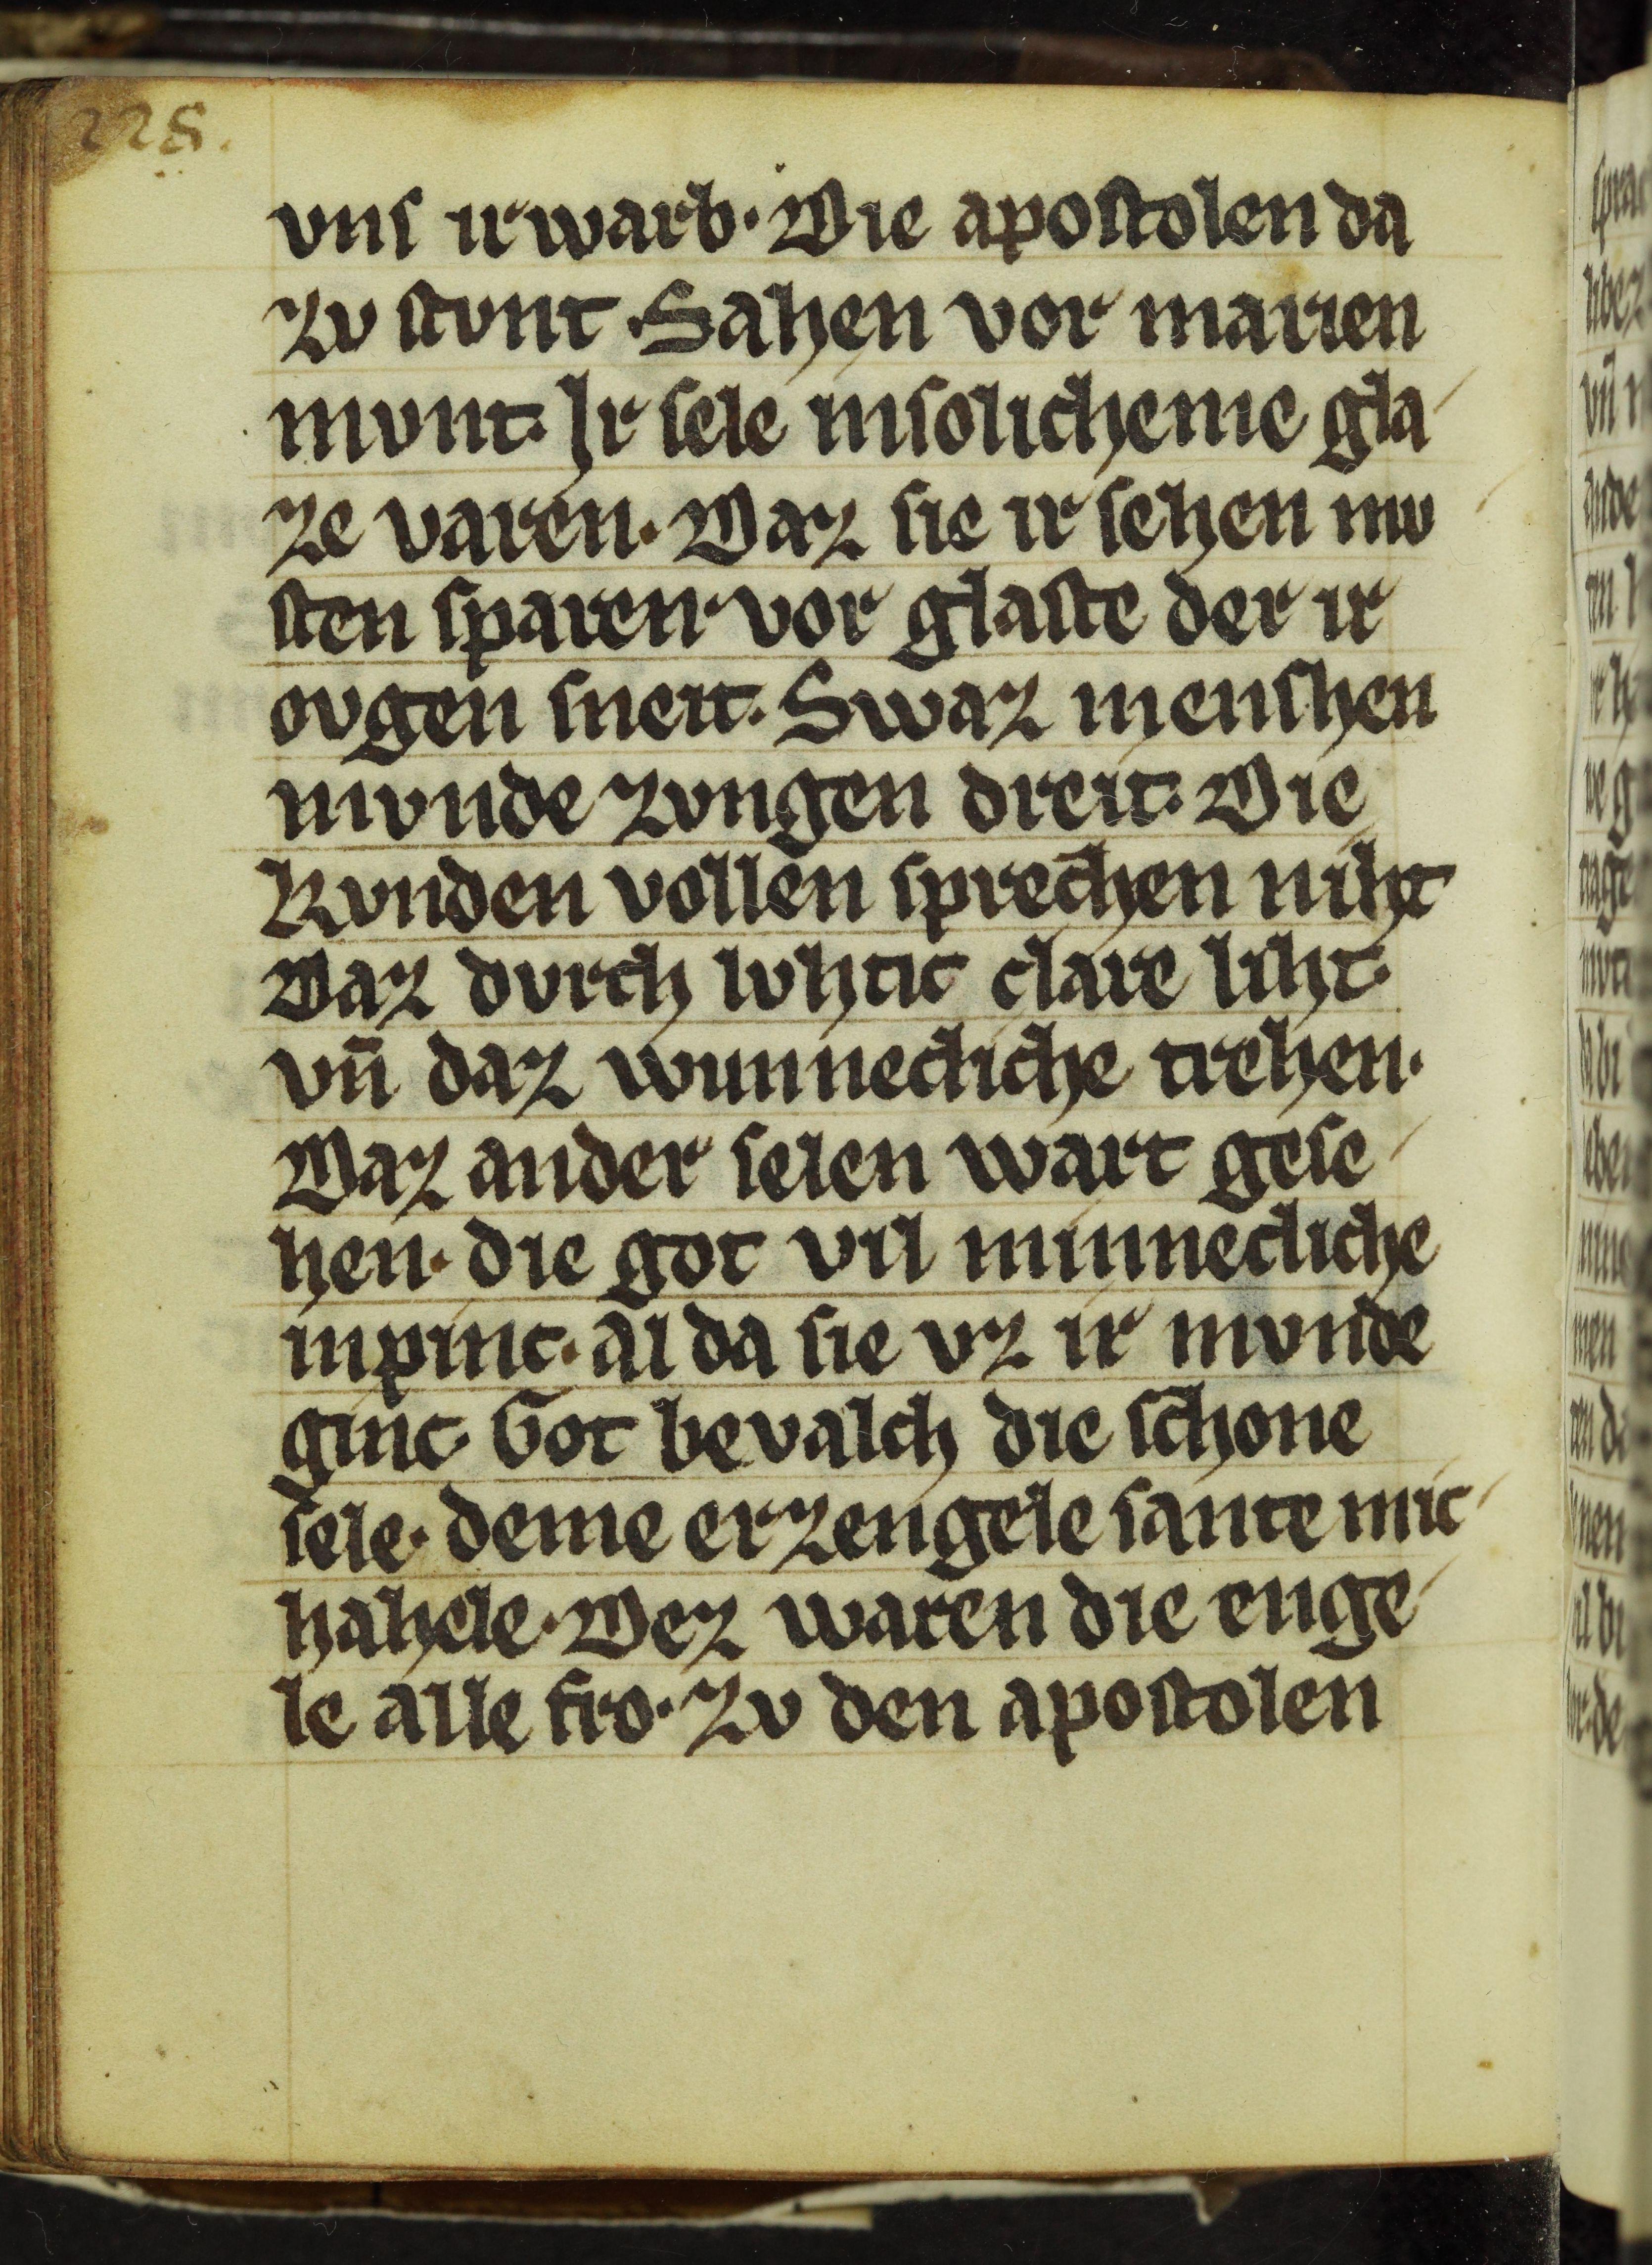 228.
vns irwarb· Die apostolen da
zv stvnt ·Sahen vor marien
mvnt· Ir sele insolicheme gla
ze varen· Daz sie ir sehen mv
sten sparen· vor glaste der ir
ovgen sneit· Swaz menshen
mvnde zvngen dreit· Die
kvnden vollen sprechen niht
Daz dvrch lvhtic clare liht·
vn̄ daz wunnecliche trehen·
Daz ander selen wart gese
hen· die got vil minnecliche
inpinc· al da sie vz ir mvnde
ginc· Got bevalch die schone
sele· deme erzengele sante mic
hahele· Dez waren die enge
le alle fro· Zv den apostolen